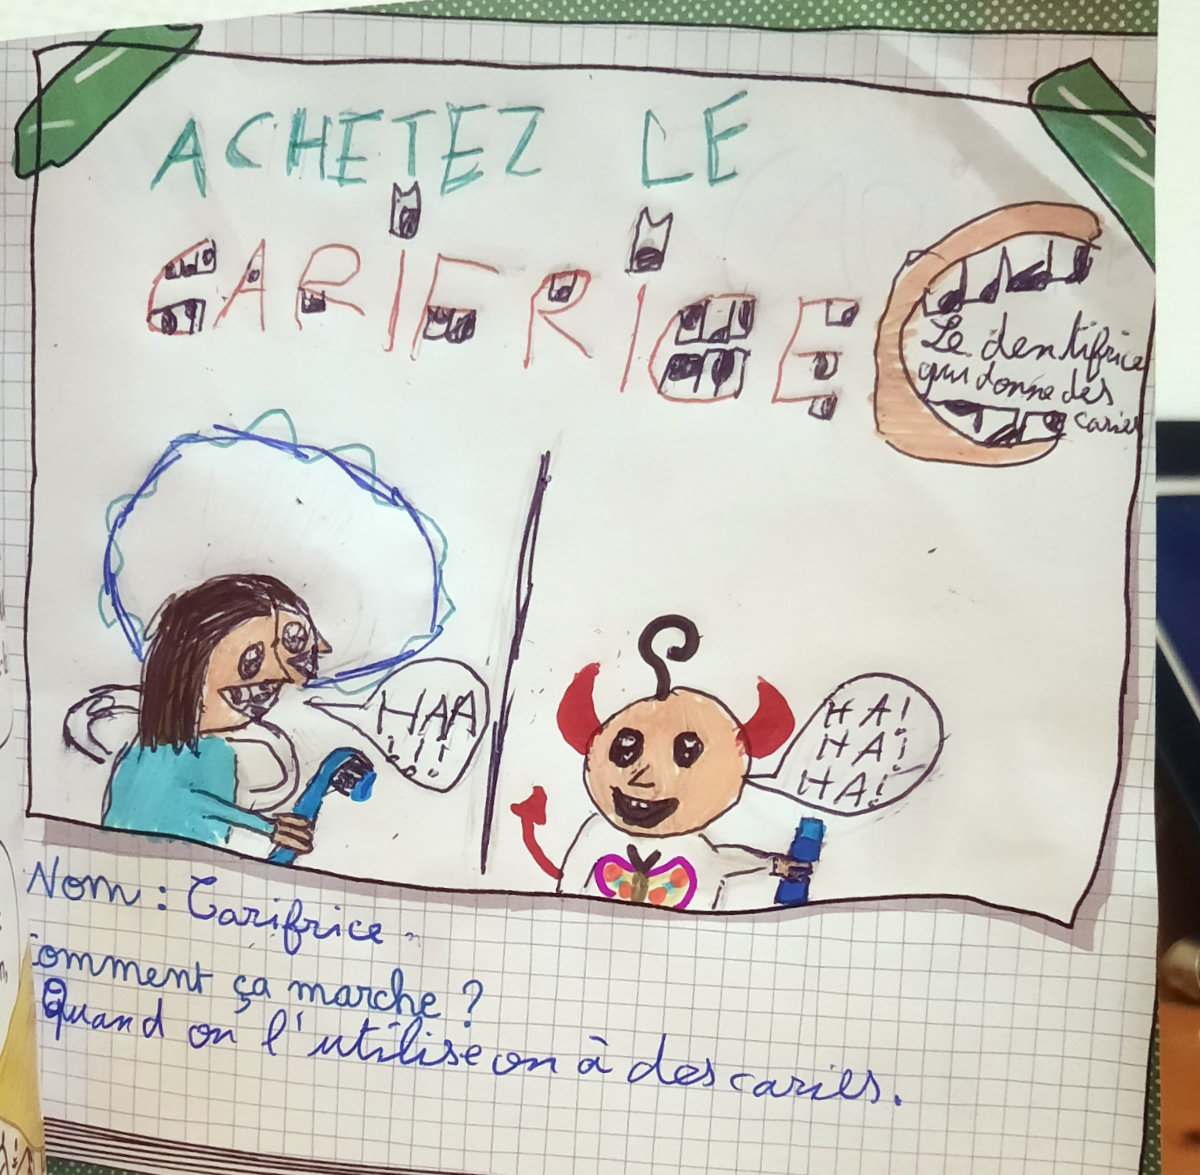 ACHETEZ LE
CARIFRICE
Le dentifrice
qui donne des
caries
HAA
!!!
HA!
HA!
HA!
Nom : Carifrice.
omment ça marche ?
Quand on l'utilise on à des caries.